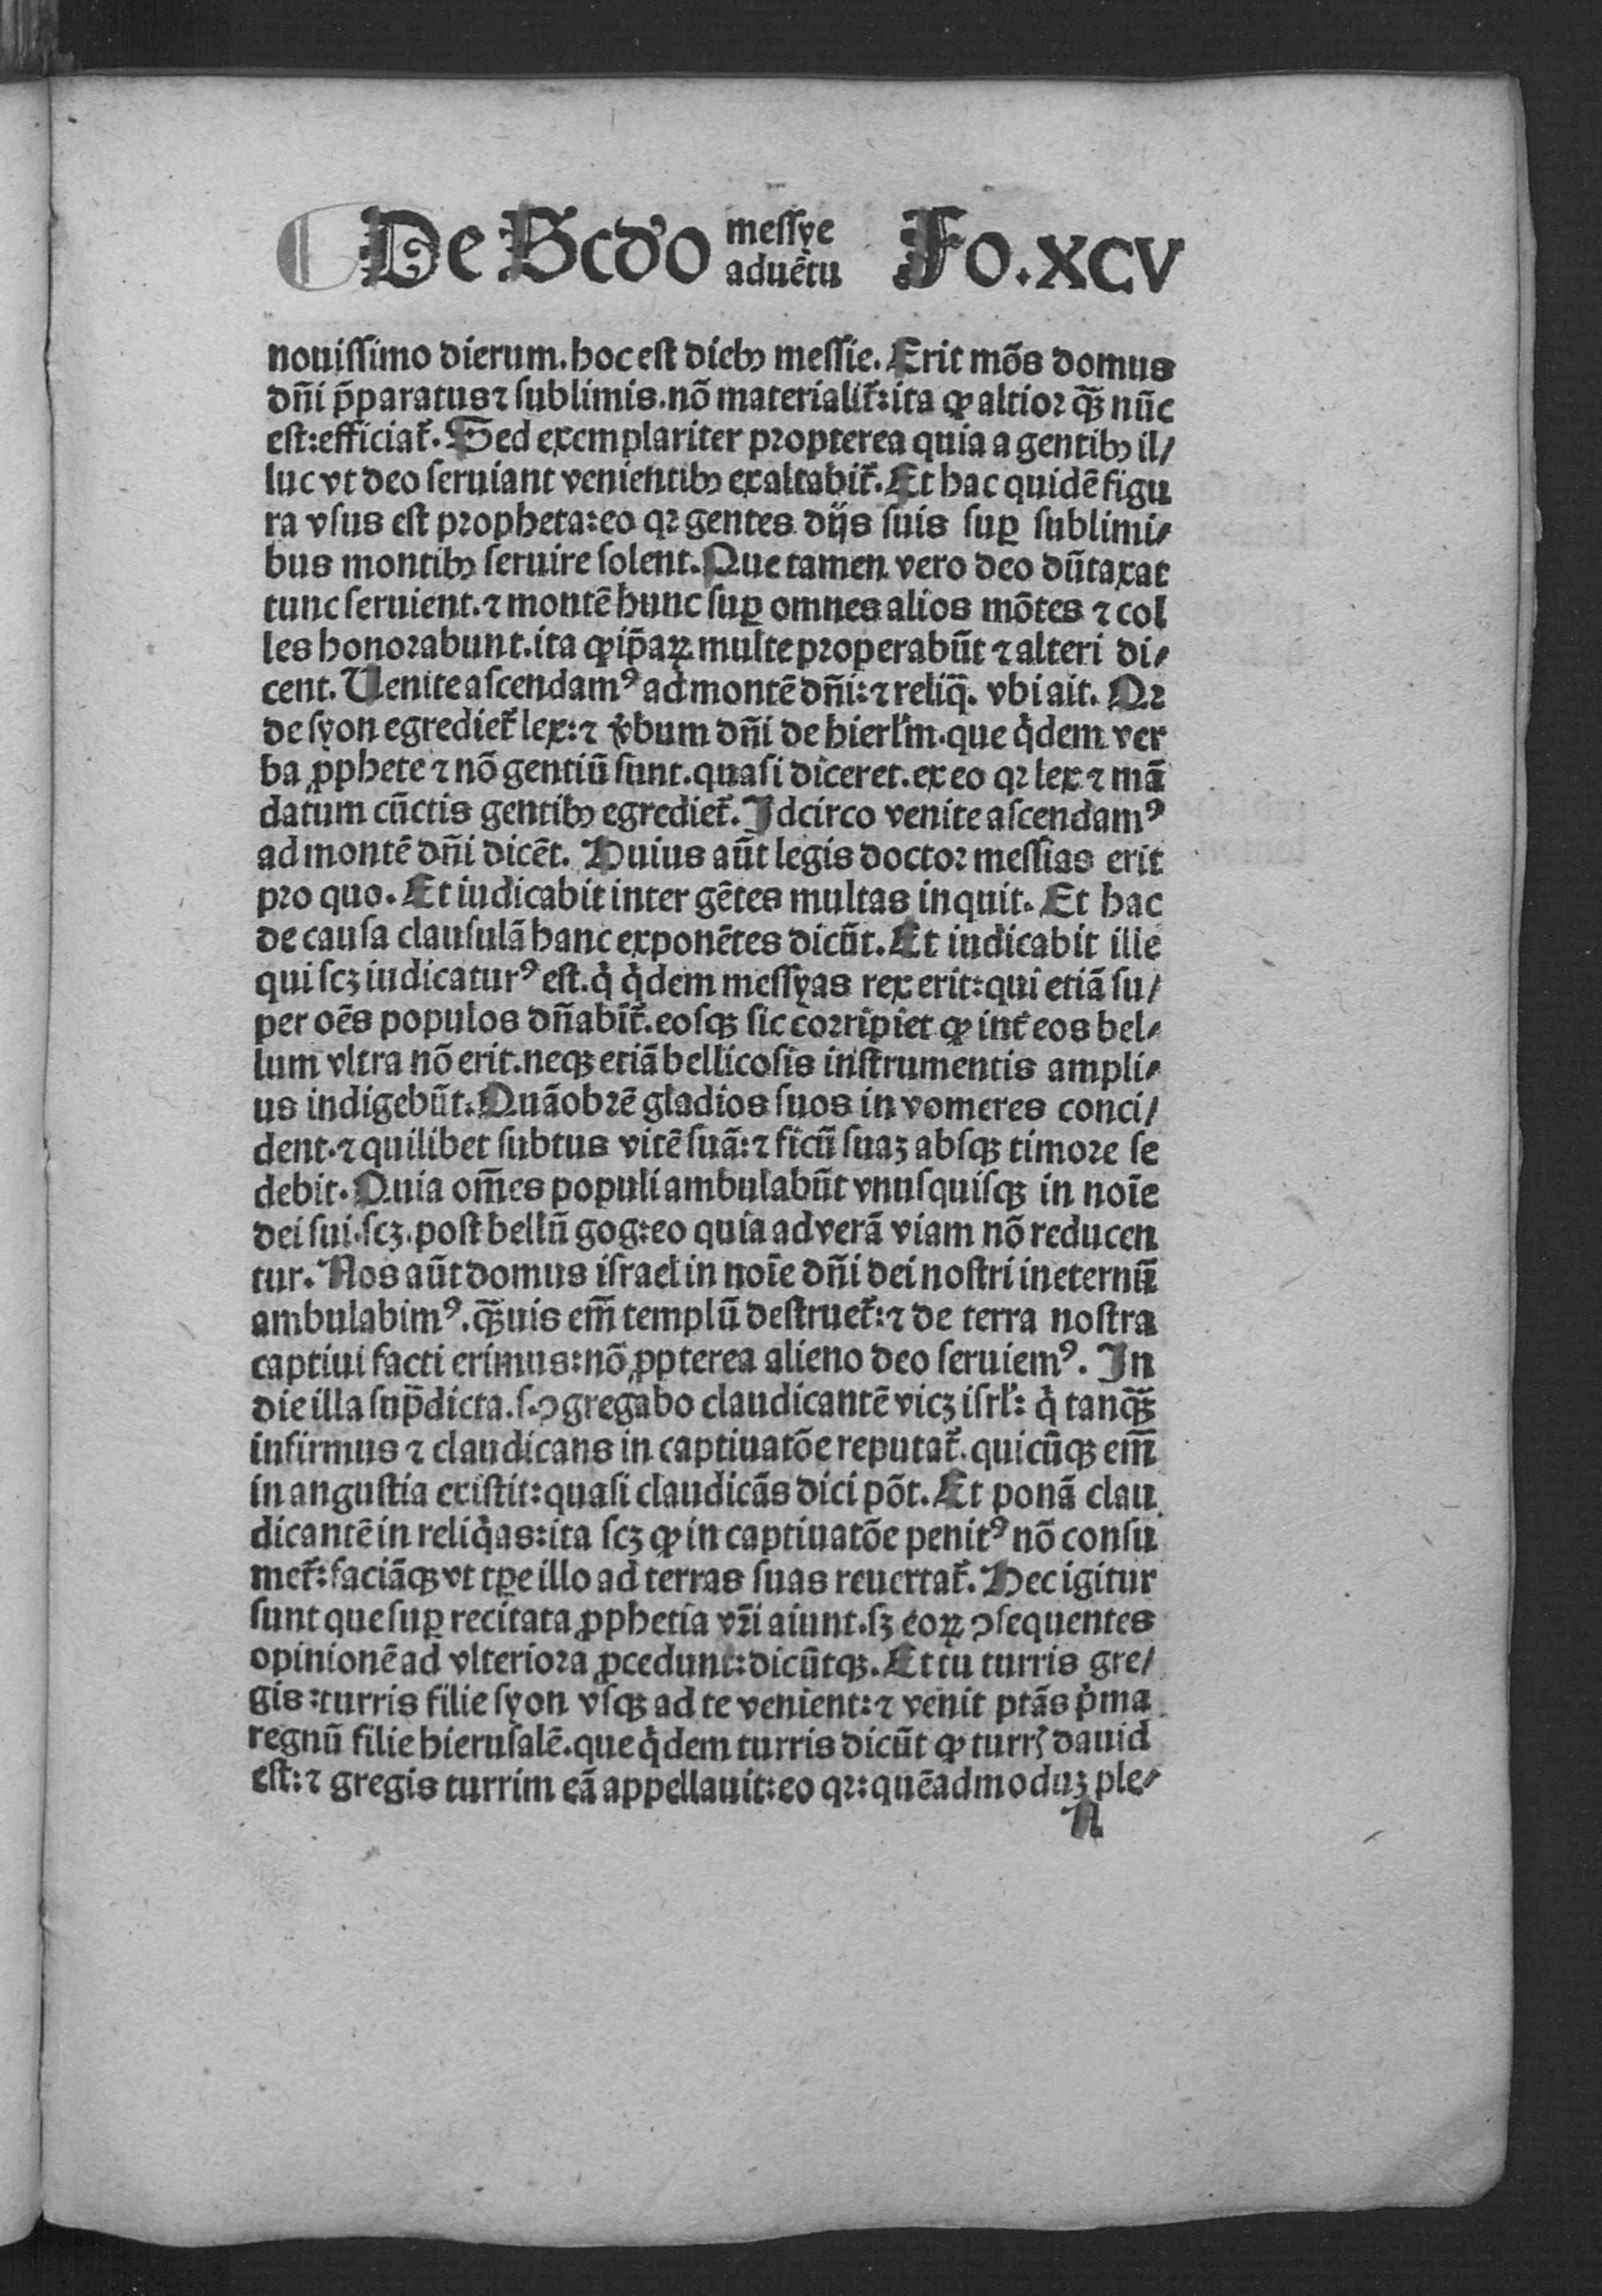 De Scdo messye aduētu Fo. XCV
nouissimo dierum. hoc est dieb9 messie. Erit mōs domus
dn̄i p̄paratus ⁊ sublimis. nō materialit̄: ita ꝙ altior qꝫ̄ nūc
est: efficiat̄. Sed exemplariter propterea quia a gentibꝫ il/
luc vt deo seruiant venientibꝫ exaltabit̄. Et hac quidē figu
ra vsus est propheta: eo qꝛ gentes dijs suis suꝑ sublimi/
bus montibꝫ seruire solent. Que tamen vero deo dūtaxat
tunc seruient. ⁊ montē hunc suꝑ omnes alios mōtes ⁊ col
les honorabunt. ita ꝙ ip̄aꝝ multe properabūt ⁊ alteri di/
cent. Uenite ascendamꝰ ad montē dn̄i: ⁊ reliq̄. vbi ait. Qꝛ
de syon egrediet̄ lex: ⁊ v̓bum dn̄i de hierl̓m. que q̇dem ver
ba ꝓphete ⁊ nō gentiū sunt. quasi diceret. ex eo qꝛ lex ⁊ mā
datum cūctis gentibꝫ egrediet̄. Idcirco venite ascendamꝰ
ad montē dn̄i dicēt. Huius aūt legis doctor messias erit
pro quo. Et iudicabit inter gētes multas inquit. Et hac
de causa clausulā hanc exponētes dicūt. Et iudicabit ille
qui scꝫ iudicaturꝰ est. q̇ q̇dem messyas rex erit: qui etiā su/
per oēs populos dn̄abit̄. eosqꝫ sic corripiet ꝙ int̄ eos bel/
lum vltra nō erit. neqꝫ etiā bellicosis instrumentis ampli/
us indigebūt. Quāobrē gladios suos in vomeres conci/
dent. ⁊ quilibet subtus vitē suā: ⁊ ficū suaꝫ absqꝫ timore se
debit. Quia om̄es populi ambulabūt vnusquisqꝫ in noīe
dei sui. scꝫ. post bellū gog: eo quia ad verā viam nō reducen
tur. Nos aūt domus israel in noīe dn̄i dei nostri in eternū
ambulabimꝰ. qꝫ̄uis em̄ templū destruet̄: ⁊ de terra nostra
captiui facti erimus: nō ꝓpterea alieno deo seruiemꝰ. In
die illa sup̄dicta. s. ꝯgregabo claudicantē vicꝫ isrl̓: q̇ tanqꝫ̄
infirmus ⁊ claudicans in captiuatōe reputat̄. quicūqꝫ em̄
in angustia existit: quasi claudicās dici pōt. Et ponā clau
dicantē in reliq̇as: ita scꝫ ꝙ in captiuatōe penitꝰ nō consu
met̄: faciāqꝫ vt tꝑe illo ad terras suas reuertat̄. Hec igitur
sunt que suꝑ recitata ꝓphetia vr̄i aiunt. sꝫ eoꝝ ꝯsequentes
opinionē ad vlteriora ꝓcedunt: dicūtqꝫ. Et tu turris gre/
gis: turris filie syon vsqꝫ ad te venient: ⁊ venit ptās p̓ma
regnū filie hierusalē. que q̇dem turris dicūt ꝙ turrꝭ dauid
est: ⁊ gregis turrim eā appellauit: eo qꝛ: quēadmoduꝫ ple/
N